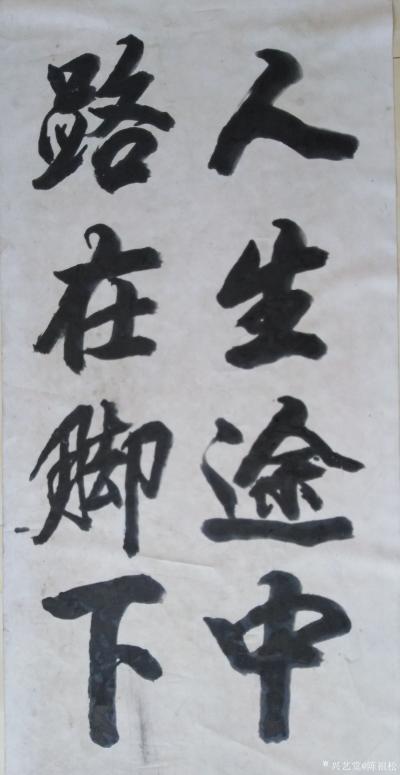 人生途中
路在脚下
兴艺堂@陈祖松